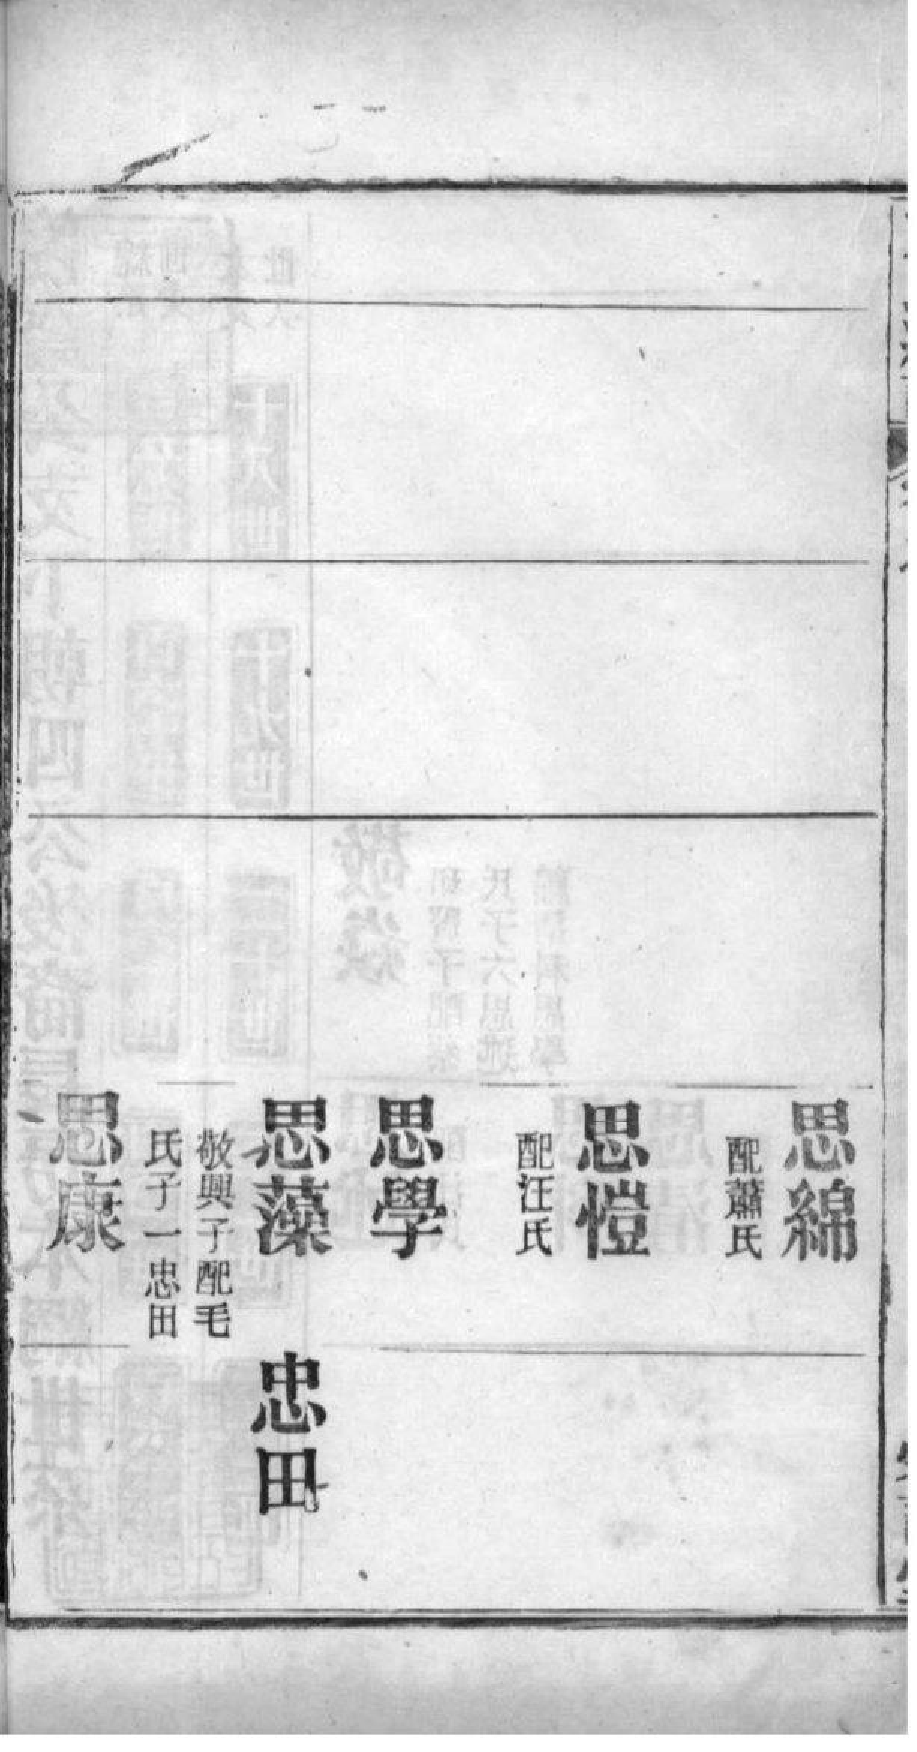 思綿
配蕭氏
思愷
配汪氏
思學
思藻
敬興子配毛
氏子一忠田
忠田
思康